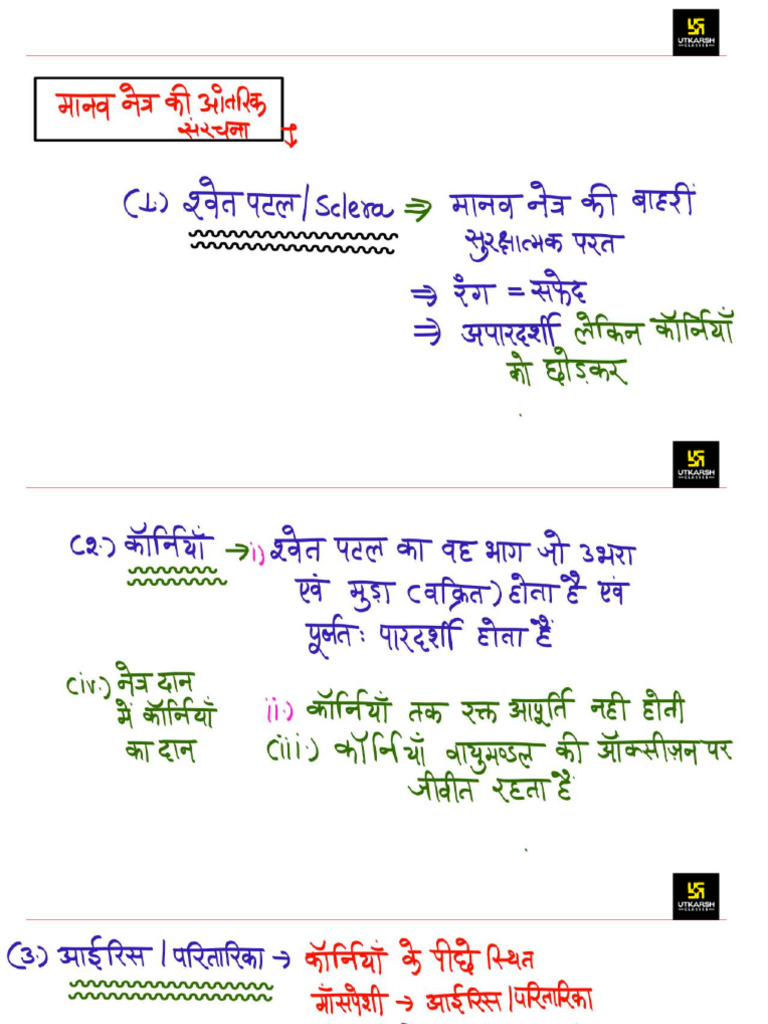 UTKARSH
CLASSES
मानव नेत्र की आंतरिक
संरचना
(1.) श्वेत पटल/Sclera ⇒ मानव नेत्र की बाहरीं
सुरक्षात्मक परत
⇒ रंग = सफेद
⇒ अपारदर्शी लेकिन कॉर्नियाँ
को छोड़कर
UTKARSH
CLASSES
(2.) कॉर्नियाँ → i) श्वेत पटल का वह भाग जो उभरा
एवं मुड़ा (वक्रित) होता है एवं
पूर्णतः पारदर्शी होता हैं
(iv.) नेत्र दान
में कॉर्नियाँ
का दान
ii.) कॉर्नियाँ तक रक्त आपूर्ति नही होती
(iii.) कॉर्नियाँ वायुमण्डल की ऑक्सीज़न पर
जीवीत रहता हैं
UTKARSH
CLASSES
(3.) आईरिस/परितारिका → कॉर्नियाँ के पीछे स्थित
माँसपेशी → आईरिस/परितारिका